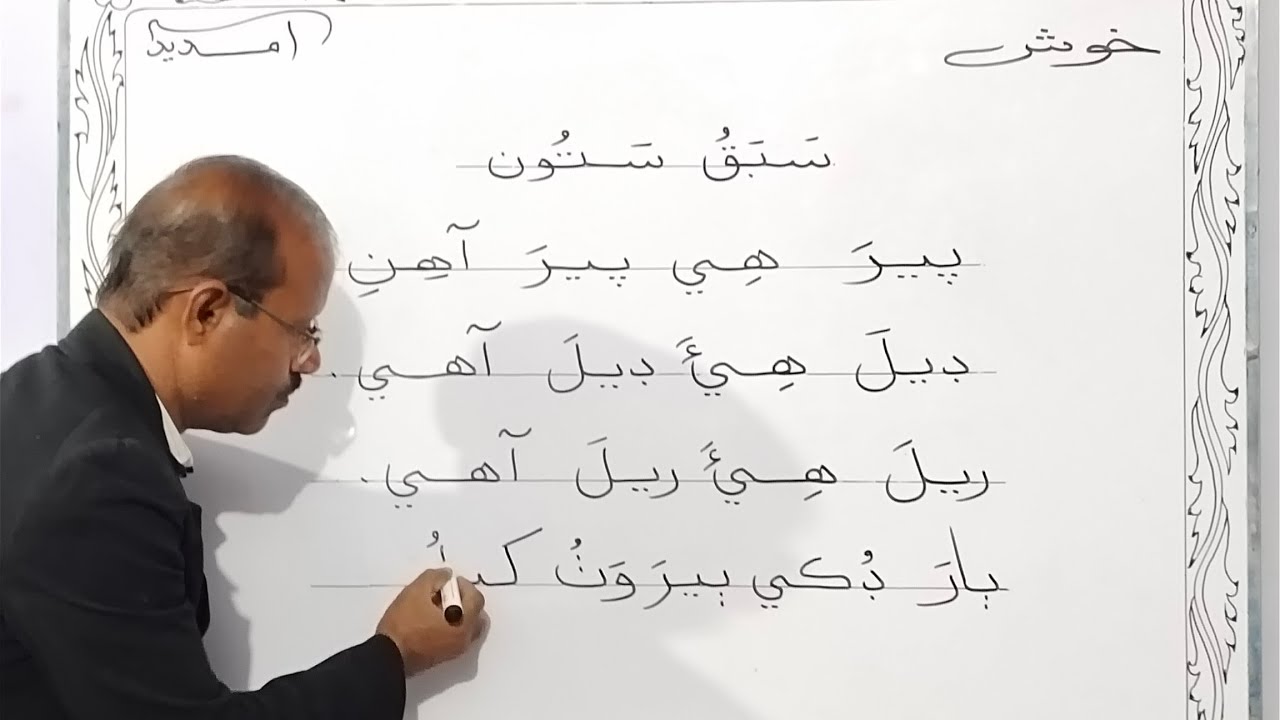 خوش آمديد
سَبَقُ سَتُون
پيرَ هِي پيرَ آهِنِ
ڊيلَ هِيءَ ڊيلَ آهي.
ريلَ هِيءَ ريلَ آهي.
ٻارَ ڊُڪي ٻيرَ وَٽُ